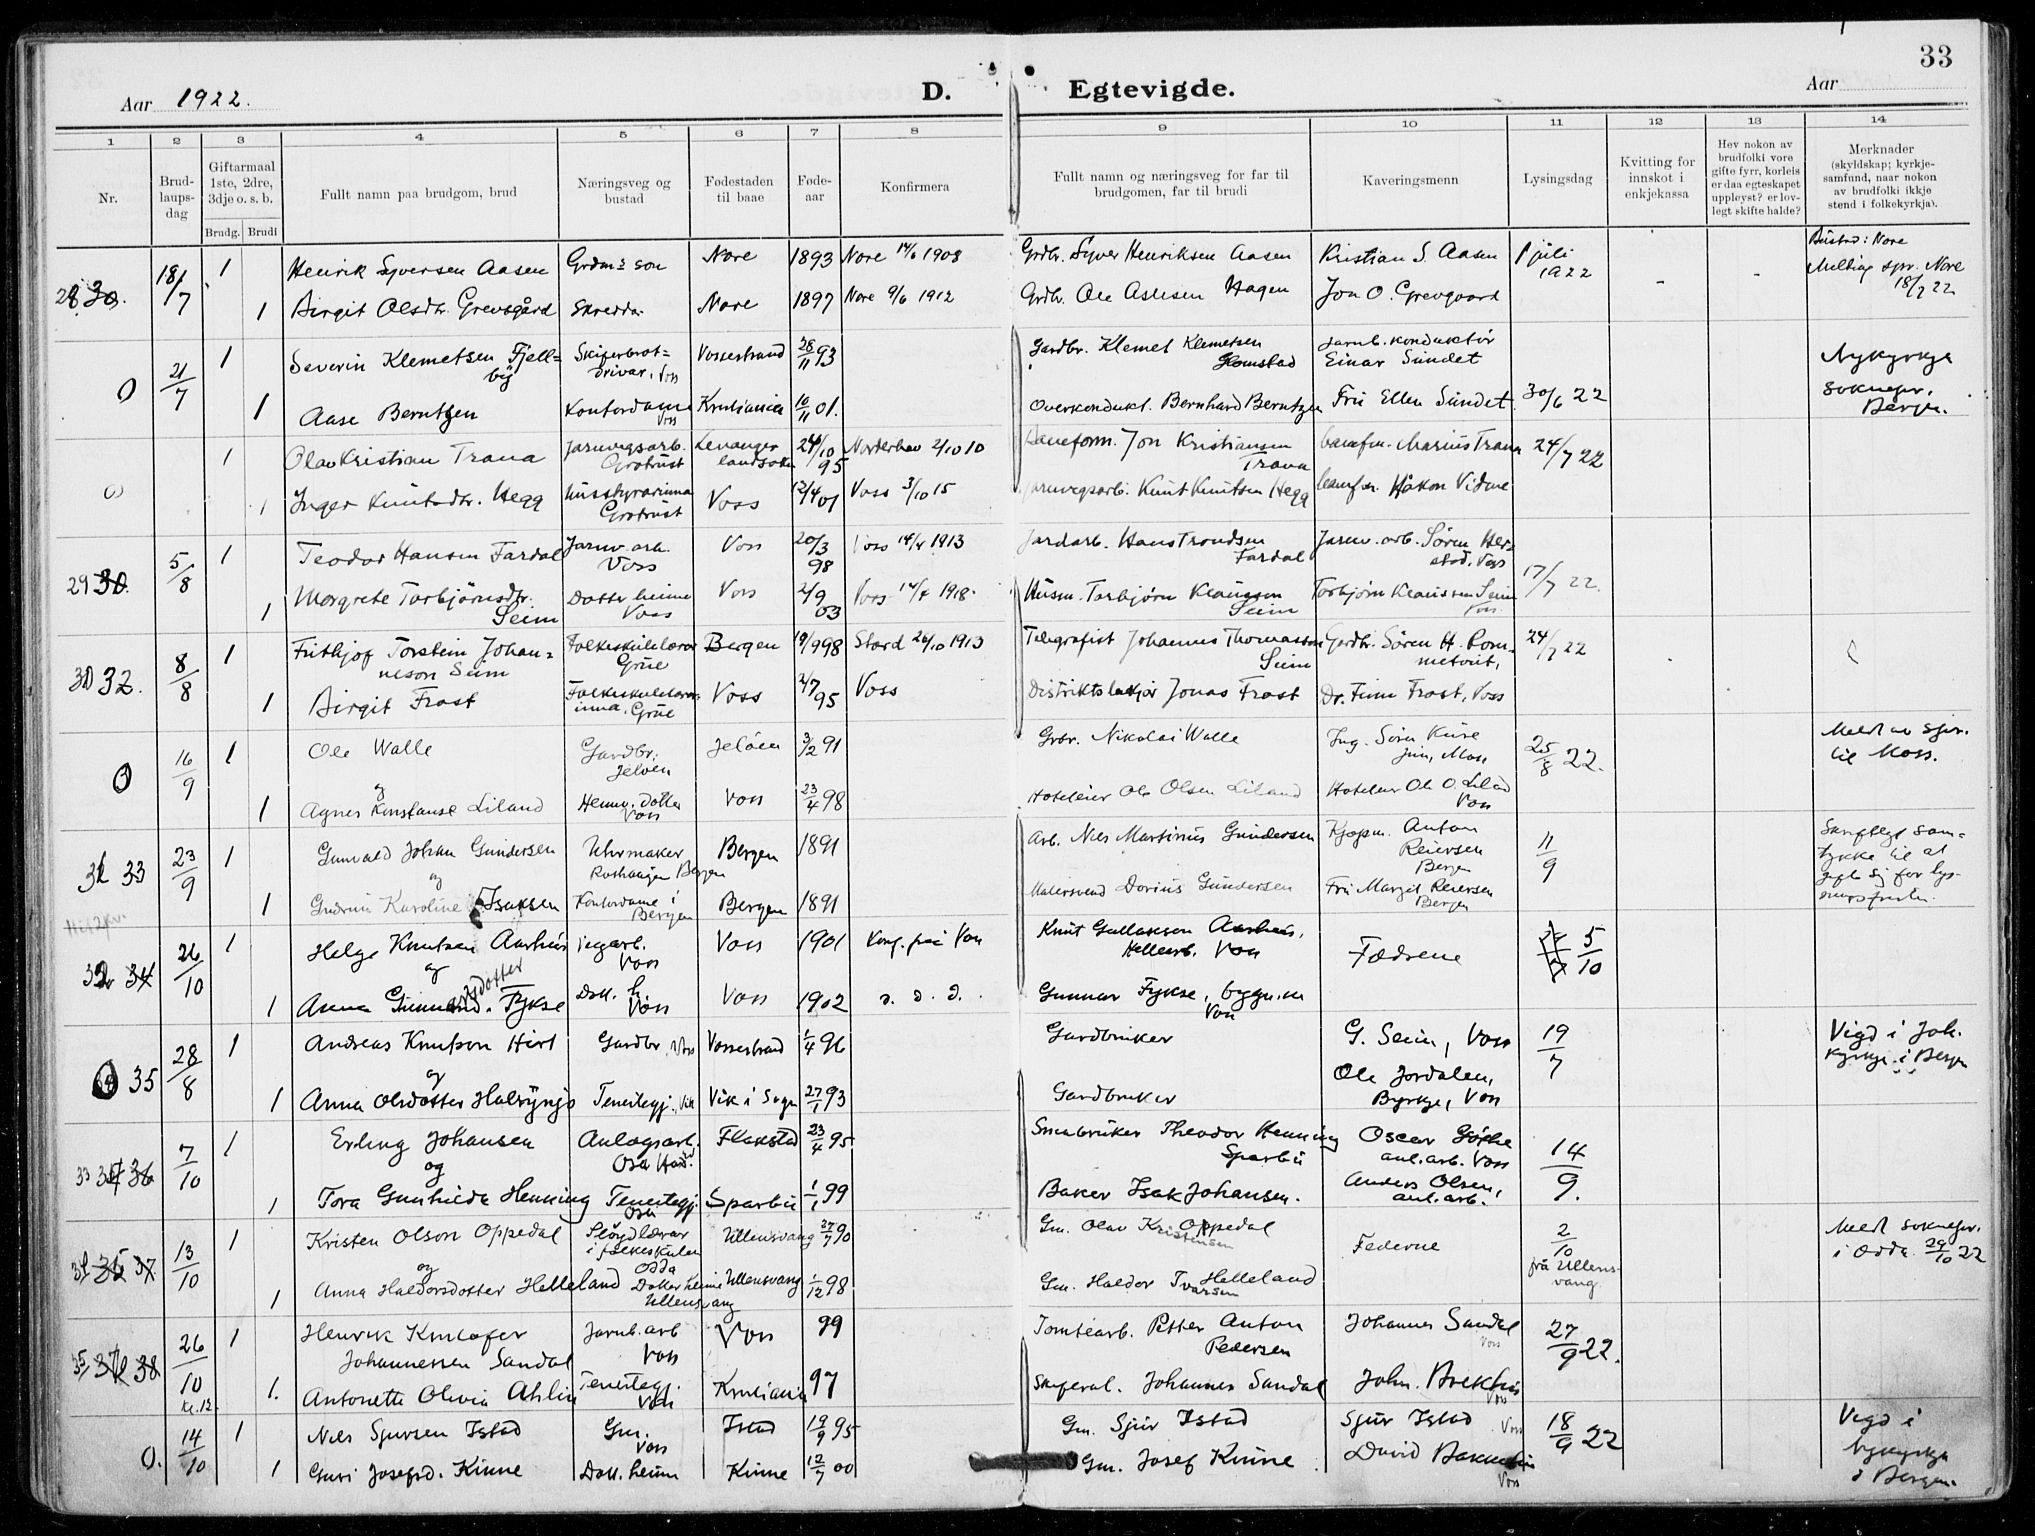 33
Aar 1922.
D. Egtevigde.
Aar
1 2 3 4 5 6 7 8 9 10 11 12 13 14
Nr.
Brud-
laups-
dag
Giftarmaal
1ste, 2dre,
3dje o. s. b.
Brudg. Brudi
Fullt namn paa brudgom, brud
Næringsveg og
bustad
Fødestaden
til baae
Føde-
aar
Konfirmera
Fullt namn og næringsveg for far til
brudgomen, far til brudi
Kaveringsmenn
Lysingsdag
Kvitting for
innskot i
enkjekassa
Hev nokon av
brudfolki vore
gifte fyrr, korleis
er daa egteskapet
uppløyst? er lov-
legt skifte halde?
Merknader
(skyldskap; kyrkje-
samfund, naar nokon
av brudfolki ikkje
stend i folkekyrkja).
18/7 1 Henrik Syversen Aasen Grdm.s son Nore 1893 Nore 14/6 1908 Grdbr. Syver Henriksen Aasen Kristian S. Aasen 1 juli 1922 Bustad: Nore
Nore 18/7 22
1 Birgit Olsdtr. Grevsgård Skreddar Nore 1897 Nore 9/6 1912 Grdbr. Ole Aslesen Hagen Jon O. Grevgaard
0 21/7 1 Severin Klemetsen Fjell= Skiferbrot= Vossestrand 28/11 93 Gardbr. Klemet Klemetsen Jarnb. konduktør Nykyrkja
drivar, Voss Einar Sundet sokneper.
1 Aase Berntzen Kontordame Voss Kristiania 10/11 01. Overkondukt. Bernhard Berntzen Fru Ellen Sundet 30/6 22 Bergen.
1 Olav Kristian Trana Jarnvegsarb. Levanger 24/10 95 Norderhov 2/10 10 Jon Kristiansen Trana Marius Trana 24/7 22
0 1 Inger Knutsdtr. Hegg Voss 12/4 01 Voss 3/10 15 Jarnvegsarb. Knut Knutsen Hegg Håkon Vidme
29 30. 5/8 1 Teodor Hansen Fardal Jarnv. arb. Voss Voss 20/3 98 Voss 14/4 1913 Jardarb. Hans Trondsen Fardal Jarnv. arb. Sören Her-
stad, Voss 17/7 22.
1 Margrete Torbjörnsdtr. Seim Dotter heime Voss Voss 2/9 03 Voss 14/4 1918. Husm. Torbjørn Klausson Seim Torbjørn Klausson Seim Voss.
32. 8/8 1 Fritkjof Torstein Johan= Folkeskulelærar Bergen 19/9 98 Stord 26/10 1913 Telegrafist Johannes Thomassen Seim Gardbr. Sören H. Rom- 24/7 22
neson Seim Grue
1 Birgit Frost Folkeskulelærar-
inna, Grue Voss 2/7 95 Voss Jonas Frost Dr. Finn Frost, Voss
0 16/9 1 Ole Walle Gardbr. Jelöen Jelöen 3/2 91 Grbr. Nikolai Walle Ing. Sören Kure 25/8 22. til Moss.
jun, Moss
og
1 Agnes Konstanse Liland Heimv. dotter Voss Voss 23/4 98 Hoteleier Ole Olsen Liland Hoteleier Ole O. Liland Voss
33 23/9 1 Gunvald Johan Gundersen Uhrmaker Bergen 1891 Arb. Nils Martinius Gundersen Kjøpm. Anton 11/9
Reiersen Bergen
og
1 Gudrun Karoline Isaksen Kontordame i Bergen Bergen 1891 Malersvend Dorius Gundersen Fru Margit Reiersen Bergen
34 26/10 1 Helge Knutsen Aarhus Voss Voss 1901 Konf. frå Voss Knut Gullaksen Aarhus, Voss Fædrene 5/10
og
1 Anna Fykse Dott. h. Voss Voss 1902 Gunnar Fykse, Voss
35 28/8 1 Andreas Knutson Hirt Gardbr., Voss Vossestrand 1/4 96 Gardbruker G. Seim, Voss 19/7 Vigd i Joh.
kyrkja i Bergen
og
1 Anna Olsdotter Halsynjo Tenestegj., Vik Vik i Sogn 27/1 93 Gardbruker Ole Jordalen,
Byrkje, Voss
33 36 7/10 1 Erling Johansen Anlagsarb. Flakstad 23/4 95 Smabruker Theodor Henning Sparbu Oscar Göthe 14/9.
anl.arb. Voss
og
1 Tora Gunhilda Henning Tenestegj. Osa Sparbu 1/1 99 Baker Isak Johansen. Anders Olsen,
anl. arb.
37 13/10 1 Kristen Olson Oppedal Slöydlærar Ullensvang 27/7 90 Gm. Olav Kristensen Oppedal Federne 2/10 Meldt sokneper.
i folkeskulen
Odda frå Ullens-
vang. i Odda 29/10 22
og
1 Anna Haldorsdotter Helleland Dotter heime Ullensvang Ullensvang 1/12 98 Gm. Haldor Ivarsen Helleland
35 38 26/10 Kl. 12. 1 Henrik Kristofer Jarnb. arb Voss Voss 99 Tomtearb. Petter Anton Pedersen Johannes Sandal Voss 27/9 22.
Johannessen Sandal
1. Antonette Olivia Ahlin Tenestegj. Voss Kristiania 97 Johannes Sandal John. Brekhus Voss
0. 14/10 1 Nils Sjursen Istad Gm. Voss Istad 19/9 95 Gm. Sjur Istad Sjur Istad Voss 18/9 22 Vigd i
Nykyrkja
1 Guri Josefsd. Kinne Dott. heime Kinne 12/7 00 Gm. Josef Kinne David Voss i Bergen.